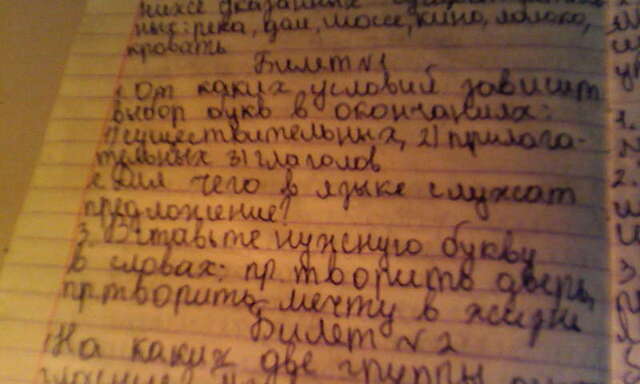 ниже указанных
ных: река, дом, шоссе, кино, яблоко,
кровать
Билет №1
1. От каких условий зависит
выбор букв в окончаниях:
1) существительных, 2) прилага-
тельных 3) глаголов
2. Для чего в языке служат
предложение?
3. Вставьте нужную букву
в словах: пр.творить дверь,
пр.творить мечту в жизни
Билет №2
На каких две группы